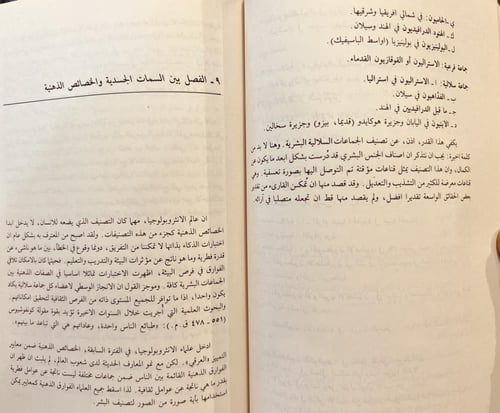 ي. الحاميون: في شمالي افريقيا وشرقيها.
ك. الهنود الدرافيديون في الهند وسيلان.
ل. البولينيزيون في بولينيزيا (اواسط الباسيفيك).
جماعة فرعية: الاستراليون أو القوقازيون القدماء.
جماعة سلالية: أ. الاستراليون في استراليا.
ب. الفدّاهيون في سيلان.
ج. ما قبل الدرافيديين في الهند.
د. الاينيون في اليابان وجزيرة هوكايدو (قديما، بيزو) وجزيرة سخالين.
يكفي هذا القدر، اذن، عن تصنيف الجماعات السلالية البشرية. وهنا لا بد من
كلمة اخيرة: يجب ان نتذكر ان اصناف الجنس البشري قد دُرست بشكل ابعد ما يكون عن
الكمال، وان هذا التصنيف يمثل قناعات مؤقتة تم التوصل اليها بصورة تعسفية. وهي
قناعات معرضة للكثير من التشذيب والتعديل. وقد قصد منها ان تُمكن القارىء من تقدير
بعض الحقائق الواسعة تقديرا افضل، ولم يقصد منها قط ان تجعله متصلبا في آرائه.
٩ - الفصل بين السمات الجسدية والخصائص الذهنية
ان عالم الانثروبولوجيا، مهما كان التصنيف الذي يضعه للانسان، لا يدخل ابدا
الخصائص الذهنية كجزء من هذه التصنيفات. ولقد اصبح من المعترف به بشكل عام ان
اختبارات الذكاء بذاتها لا تمكننا من التفريق، دونما وقوع في الخطأ، بين ما هو ناشىء عن
قدرة فطرية وما هو ناتج عن مؤثرات البيئة والتدريب والتعليم. فحيثما كان بالامكان تلافي
الفوارق في فرص البيئة، اظهرت الاختبارات تماثلا اساسيا في الصفات الذهنية بين
الجماعات البشرية كافة. وموجز القول ان الانجاز الوسطي لاعضاء كل جماعة سلالية يكاد
يكون واحدا، اذا ما توافر للجميع المستوى ذاته من الفرص الثقافية لتحقيق امكاناتهم.
والبحوث العلمية التي أجريت خلال السنوات الاخيرة تؤيد بقوة مقولة كونفوشيوس
(٥٥١ - ٤٧٨ ق.م.): «طبائع الناس واحدة، وعاداتهم هي التي تباعد ما بينهم».
ادخل علماء الانثروبولوجيا، في الفترة السابقة، الخصائص الذهنية ضمن معايير
التمييز «العرقي». لكن مع نمو المعارف الحديثة لدى شعوب العالم، لم يلبث ان ظهر ان
الفوارق الذهنية القائمة بين الناس ضمن جماعات مختلفة ليست ناتجة عن عوامل فطرية
بقدر ما هي ناتجة عن عوامل ثقافية. لذا اسقط جميع العلماء الفوارق الذهنية كمعايير يمكن
استخدامها بأية صورة من الصور لتصنيف البشر.